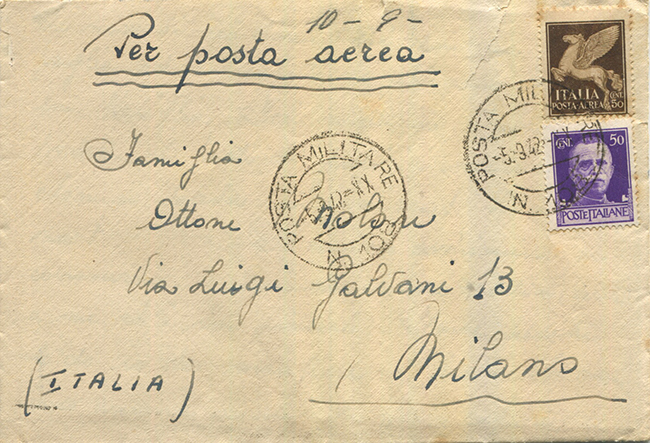 10 - 9 -
Per posta aerea
ITALIA
POSTA-AEREA
CENT 50
POSTA MILITARE
-5.9.42=XX
N
CENT 50
POSTE ITALIANE
POSTA MILITARE
42=XX
N
Famiglia
Ottone
Via Luigi Galvani 13
Milano
(ITALIA)